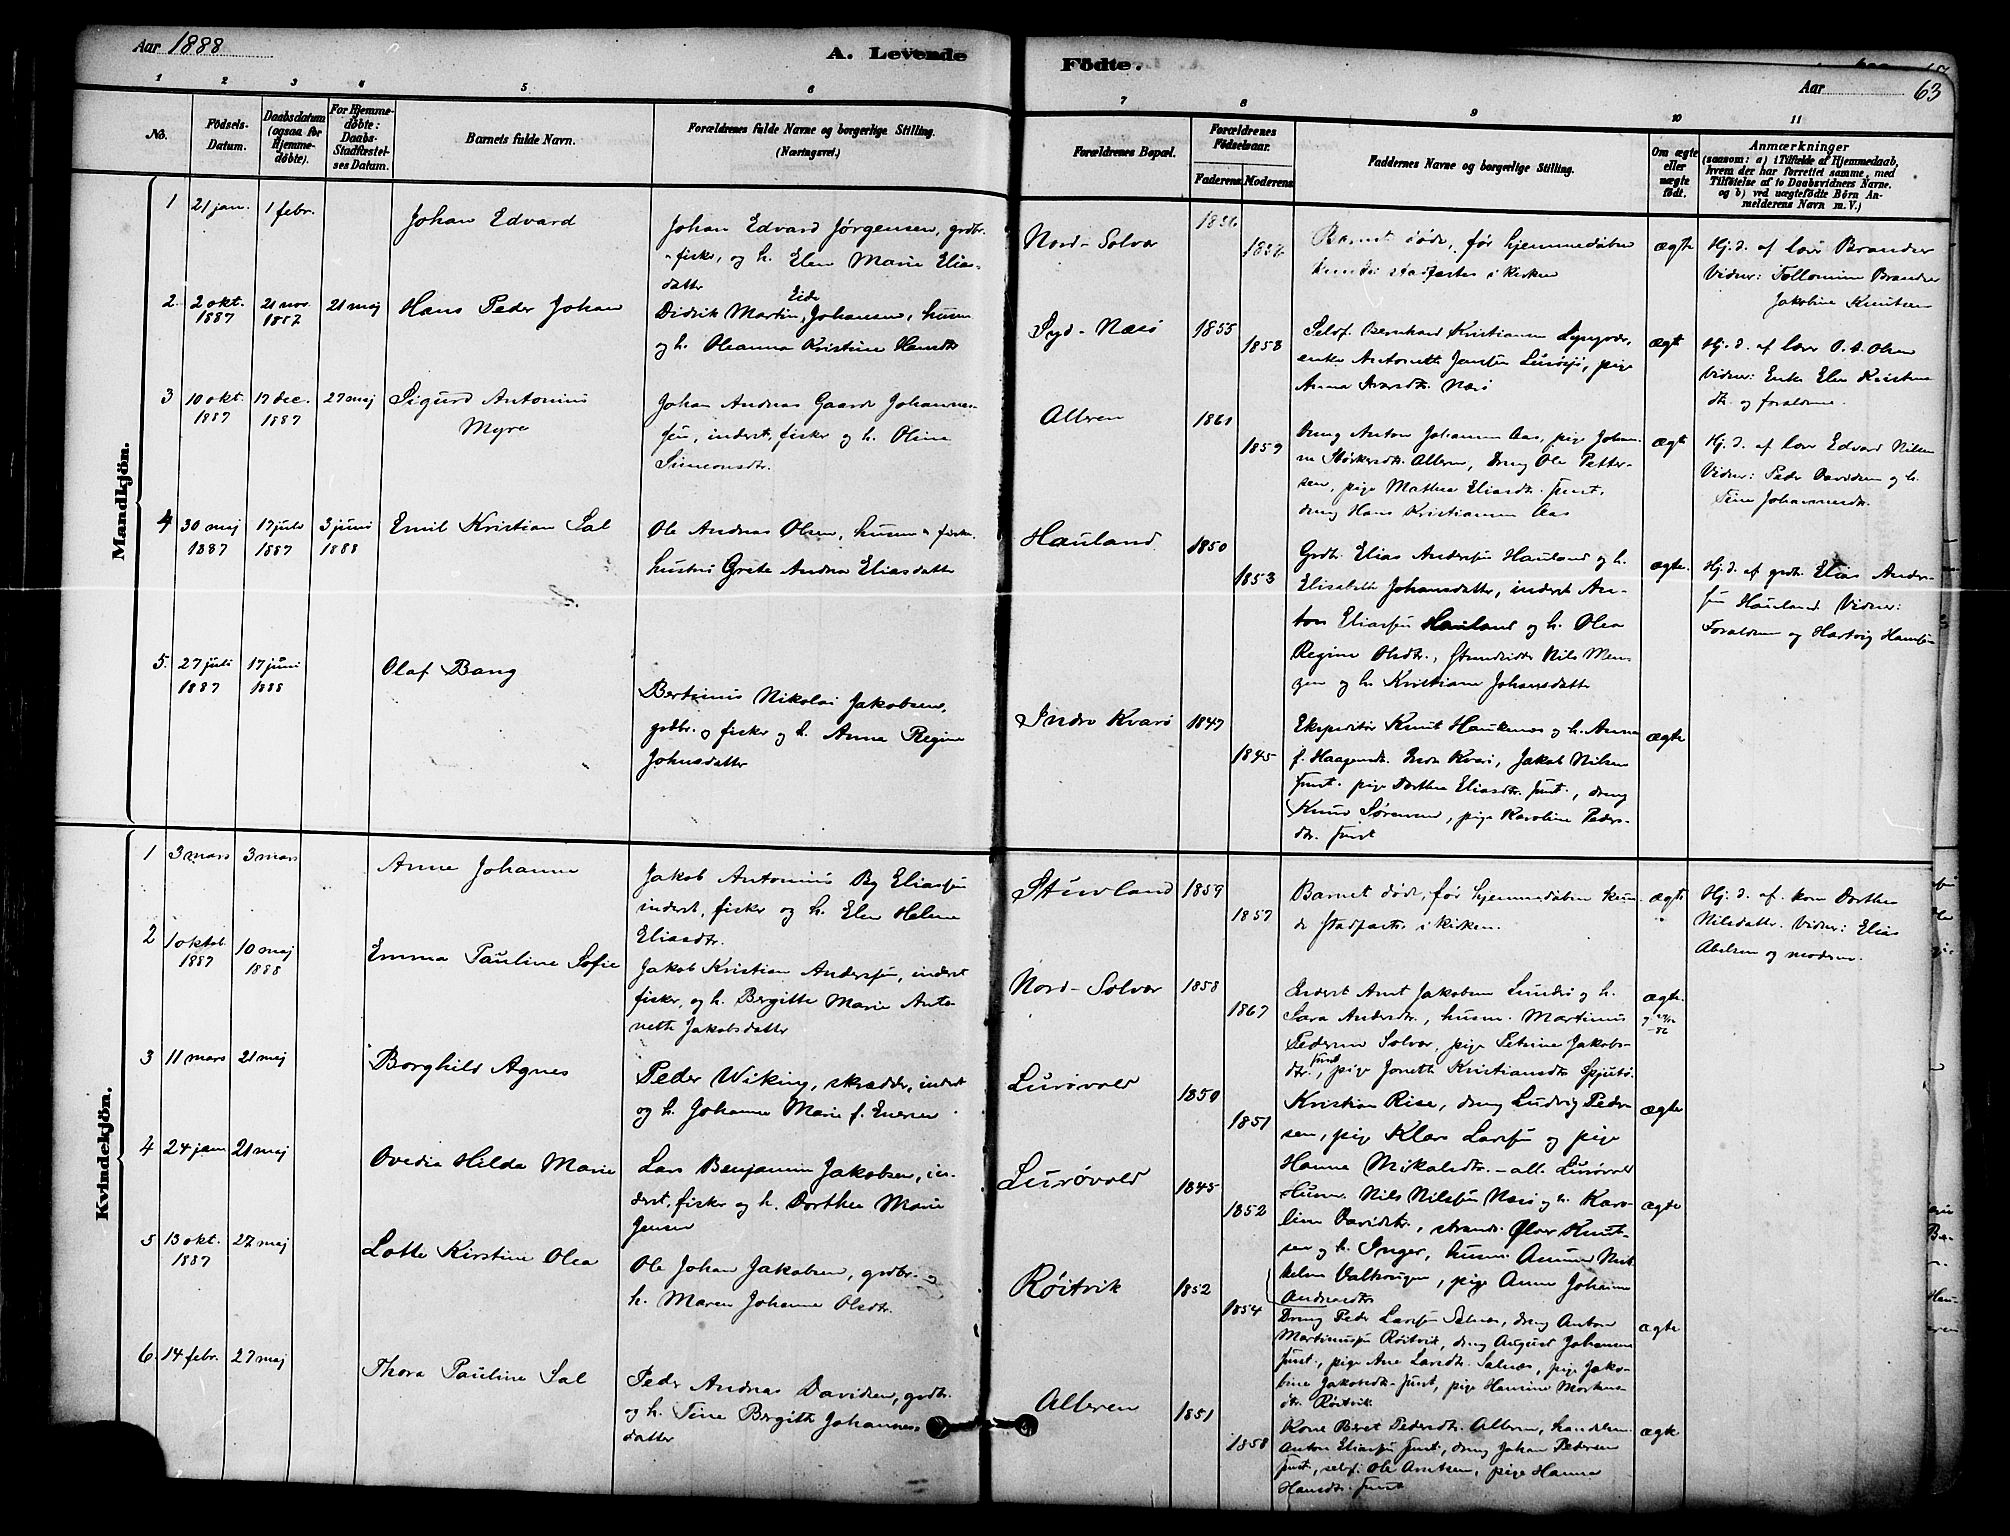 Aar 1888
A. Levende Födte.
Aar 63
1 2 3 4 5 6 7 8 9 10 11
No.
Födsels-
Datum.
Daabsdatum
(ogsaa for
Hjemme-
døbte).
For Hjemme-
døbte:
Daabs-
Stadfæstel-
ses Datum.
Barnets fulde Navn.
Forældrenes fulde Navne og borgerlige Stilling.
(Næringsvei.)
Forældrenes Bopæl.
Forældrenes
Födselsaar.
Faderens. Moderens.
Faddernes Navne og borgerlige Stilling.
Om ægte
eller
uægte
født.
Anmærkninger
(saasom: a) i Tilfælde af Hjemmedaab,
hvem der har forrettet samme, med
Tilføielse af to Daabsvidners Navne.
og b) ved uægtefødte Börn An-
melderens Navn m. V.)
Mandkjön.
1 21 jan. 1 febr.
Johan Edvard
Johan Edvard Jørgensen, grdbr.
fisker, og h. Elen Marie Elias-
datter
Nord-Solvær
1856
Barnet døde, før hjemmedåben
kunde stadfæstes i kirken
ægte
Hj. d. af
Vidner:
Jakobine Knutsen
2. 2 okt. 1887 21 nov. 1887 21 maj
Hans Peder Johan
Didrik Martin Eide Johansen, husm
og h. Oleanna Kristine Hansdtr
Syd-Næsø
1855
1858
Selvf. Bernhard Kristiansen
enke Antonette Jensen Lurøsjø, pige
Anna
ægte
Hj. d. af lærer O. A. Olsen
Vidner: Enke Elen Kristens
dtr. og forældrene.
3 10 okt. 1887 17 dec. 1887 27 maj
Sigurd Antonius
Myre
Johan Andreas Gaarde Johannes-
sen, inderst, fisker og h. Oline
Simeonsdtr.
Alleren
1861
1859
Dreng Anton Johansen Aas, pige Johan-
ne Størkersdtr. Alleren, dreng Ole Petter-
sen, pige Mathea Eliasdtr. smst.,
dreng Hans Kristiansen Aas
ægte
Hj. d. af lærer Edvard Nilsen
Vidner: Peder Davidsen og h.
Tine Johannesdtr.
4 30 maj 1887 17 juli 1887 3 juni 1888
Emil Kristian Sal
Ole Andreas Olsen, husm. fisker.
hustru Grete Andrea Eliasdatter
Hauland.
1850
1853
Grdb. Elias Andersen Hauland og h.
Elisabeth Johansdatter, inderst An-
ton Eliassen Hauland og h. Olea
Regine Olsdtr., Strandsidder Nils Men-
gen og h. Kristiane Johansdatter
ægte.
Hj. d. af grdb. Elias Anders-
sen Hauland. Vidner:
Forældrene og Hartvig Hansen
5. 27 juli 1887 17 juni 1888
Olaf Bang
Bertinus Nikolai Jakobsen,
grdbr. og fisker og h. Anne Regine
Johnsdatter
Indre Kvarø
1847
1845
Ekspeditør Knut Haukenæs og h. Anna
f. Haagensdtr. Indre Kvarø, Jakob Nilsen
smst. pige Dorthea Eliasdtr. smst., dreng
Knud Sørensen, pige Karoline Peders-
dtr. smst
ægte
Kvindekjön.
1 3 mars 3 mars
Anne Johanna
Jakob Antonius By Eliassen
inderst, fisker og h. Elen Helene
Eliasdtr.
Stuvland
1859
1857
Barnet døde, før hjemmedåben kun-
de stadfæstes i kirken.
ægte
Hj. d. af kone Dorthea
Nilsdatter. Vidner: Elias
Abelsen og moderen.
2 1 oktob. 1887 10 maj 1888
Emma Pauline Sofie
Jakob Kristian Anderssen, inderst
fisker, og h. Bergitte Marie Anto-
nette Jakobsdatter
Nord-Solvær
1858
1867
Inderst Arnt Jakobsen Lundø og h.
Sara Andersdtr., husm. Martinus
Pedersen Solvær, pige Petrine Jakobs-
dtr. smst, pige Jonette Kristiansdtr Spjutø.
ægte.
3 11 mars 21 maj
Borghild Agnes
Peder Wiking, skrædder, inderst
og h. Johanna Marie f. Enersen
Lurøvold
1850
1851
Kristian Rise, dreng Ludvig Peder-
sen, pige Klara Larssen og pige
Hanna Mikalsdtr. – alle Lurøvold
ægte
4 24 jan 21 maj
Ovedia Hilda Marie
Lars Benjamin Jakobsen, in-
derst, fisker og h. Dorthea Marie
Jensen
Lurøvold
1845
1852
Husm. Nils Nilssen Næsø og h. Karo-
line Davidsdtr., strands. Oluv Knut-
sen og h. Inger, husm. Amund Mik-
kelsen Valhaugen, pige Anne Johanna
Andreasdtr
ægte
5 13 okt. 1887 27 maj
Lotte Kirstine Olea
Ole Johan Jakobsen, grdbr. og
h. Maren Johanna Olsdtr.
Røitvik
1852
1854
Dreng Peder Larssen Selnæs, dreng Anton
Martinussen Røitvik, dreng August Johansen
smst., pige Ane Larsdtr. Selnæs, pige Jako-
bine Jakobsdtr. smst, pige Hansine Mortens-
dtr. Røitvik
ægte
6. 14 febr. 27 maj
Thora Pauline Sal
Peder Andreas Davidsen, grdbr.
og h. Tine Bergitte Johannes-
datter
Alleren
1851
1858
Kone Beret Pedersdtr. Alleren, handelsm.
Anton Eliassen smst., dreng Johan Pedersen
smst., selvf. Ole Arntsen, pige Hanna
Hansdtr. smst
ægte